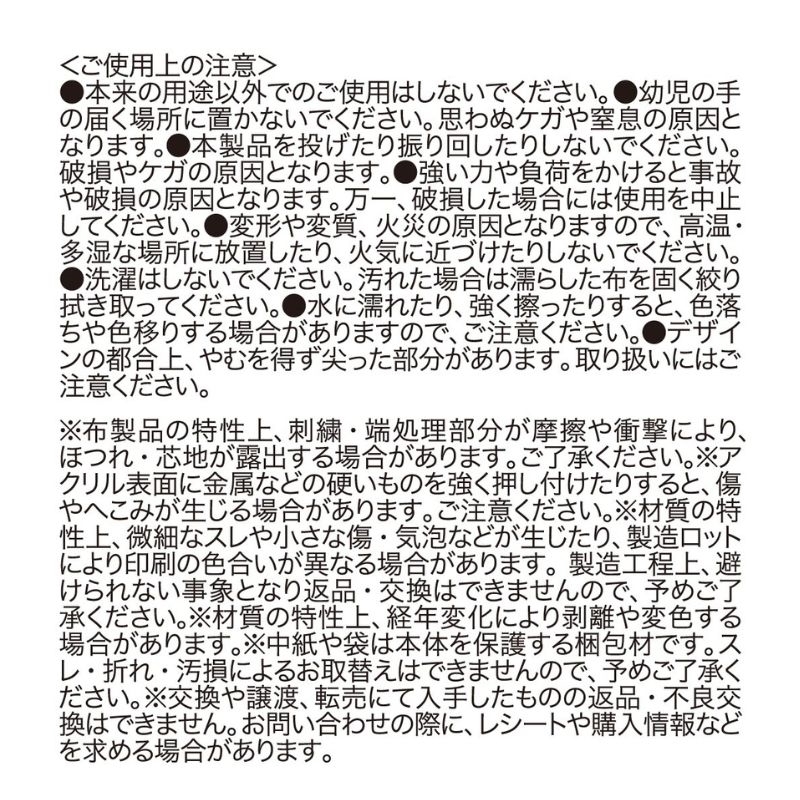 ＜ご使用上の注意＞
●本来の用途以外でのご使用はしないでください。●幼児の手
の届く場所に置かないでください。思わぬケガや窒息の原因と
なります。●本製品を投げたり振り回したりしないでください。
破損やケガの原因となります。●強い力や負荷をかけると事故
や破損の原因となります。万一、破損した場合には使用を中止
してください。●変形や変質、火災の原因となりますので、高温・
多湿な場所に放置したり、火気に近づけたりしないでください。
●洗濯はしないでください。汚れた場合は濡らした布を固く絞り
拭き取ってください。●水に濡れたり、強く擦ったりすると、色落
ちや色移りする場合がありますので、ご注意ください。●デザイ
ンの都合上、やむを得ず尖った部分があります。取り扱いにはご
注意ください。
※布製品の特性上、刺繍・端処理部分が摩擦や衝撃により、
ほつれ・芯地が露出する場合があります。ご了承ください。※ア
クリル表面に金属などの硬いものを強く押し付けたりすると、傷
やへこみが生じる場合があります。ご注意ください。※材質の特
性上、微細なスレや小さな傷・気泡などが生じたり、製造ロット
により印刷の色合いが異なる場合があります。 製造工程上、避
けられない事象となり返品・交換はできませんので、予めご了
承ください。※材質の特性上、経年変化により剥離や変色する
場合があります。※中紙や袋は本体を保護する梱包材です。ス
レ・折れ・汚損によるお取替えはできませんので、予めご了承く
ださい。※交換や譲渡、転売にて入手したものの返品・不良交
換はできません。お問い合わせの際に、レシートや購入情報など
を求める場合があります。